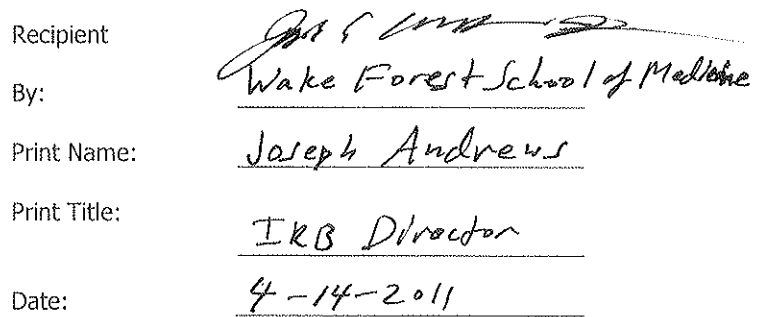 Recipient
By: Wake Forest School of Medicine
Print Name: Joseph Andrews
Print Title: IRB Director
Date: 4-14-2011